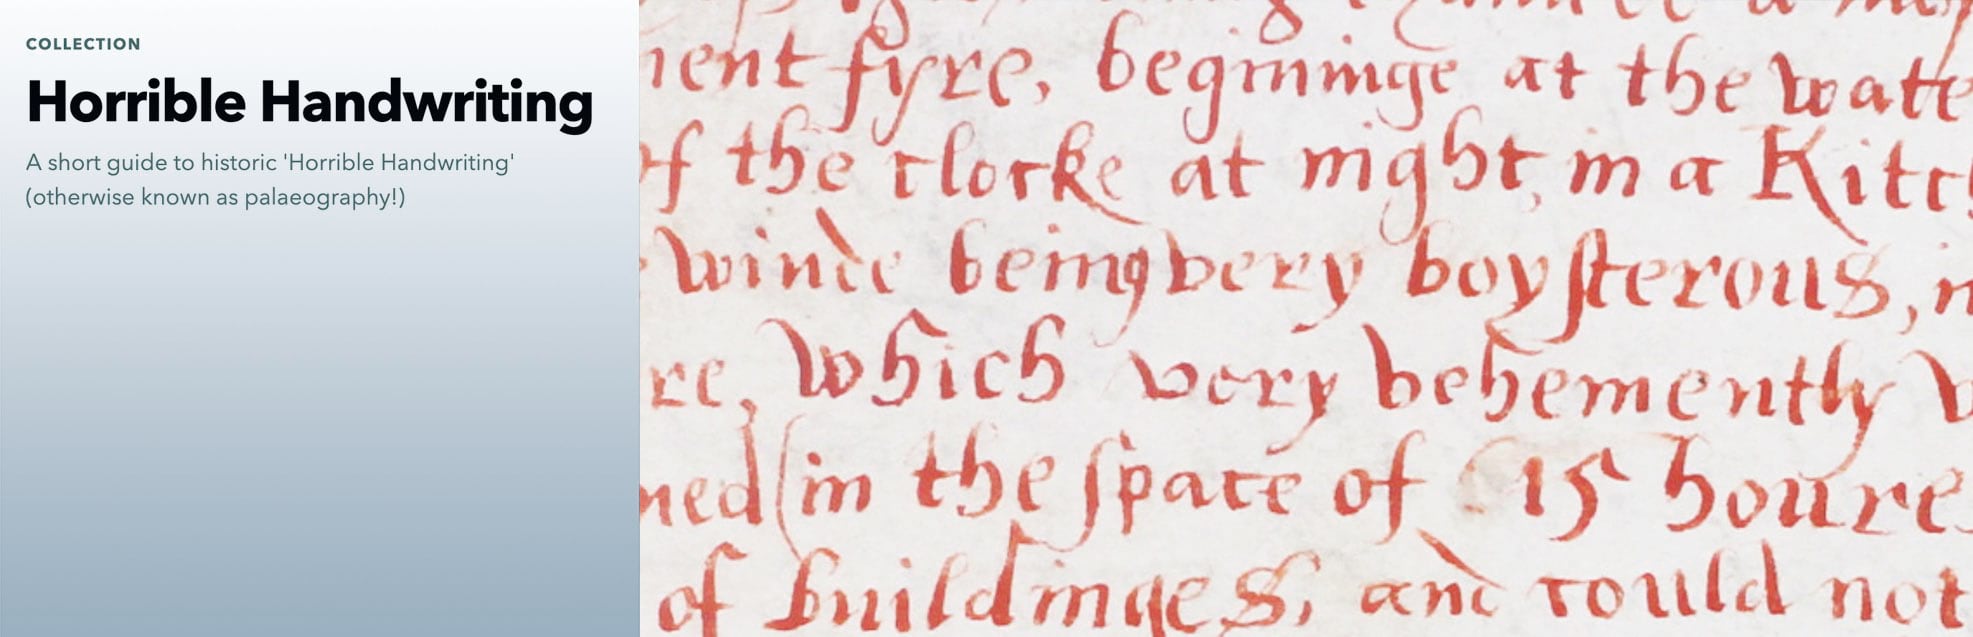 COLLECTION
Horrible Handwriting
A short guide to historic 'Horrible Handwriting'
(otherwise known as palaeography!)
ent fyre, beginninge at the wate
of the clocke at night, in a Kitc
winde being very boysterous,
re, which very vehemently
ned (in the space of 15 houre
of buildinges, and could not